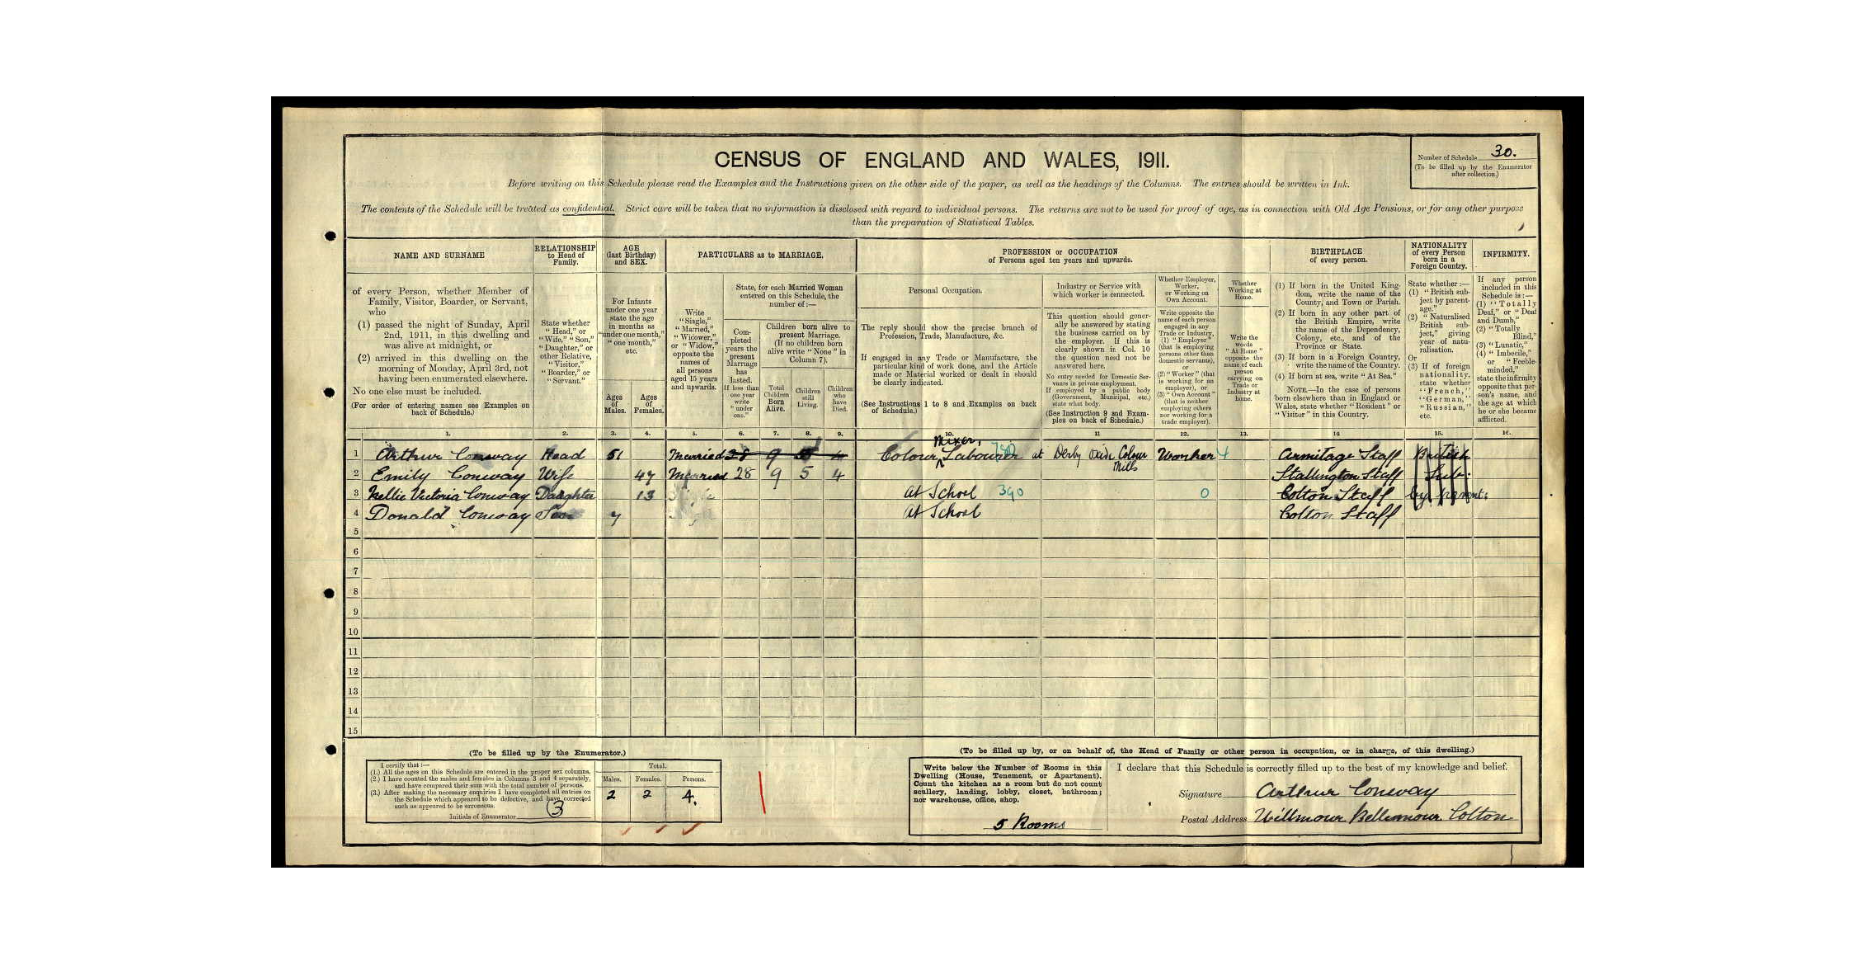 CENSUS OF ENGLAND AND WALES, 1911.
Number of Schedule 30.
(To be filled up by the Enumerator
after collection.)
Before writing on this Schedule please read the Examples and the Instructions given on the other side of the paper, as well as the headings of the Columns. The entries should be written in Ink.
The contents of the Schedule will be treated as confidential. Strict care will be taken that no information is disclosed with regard to individual persons. The returns are not to be used for proof of age, as in connection with Old Age Pensions, or for any other purpose
than the preparation of Statistical Tables.
NAME AND SURNAME
of every Person, whether Member of
Family, Visitor, Boarder, or Servant,
who
(1) passed the night of Sunday, April
2nd, 1911, in this dwelling and
was alive at midnight, or
(2) arrived in this dwelling on the
morning of Monday, April 3rd, not
having been enumerated elsewhere.
No one else must be included.
(For order of entering names see Examples on
back of Schedule.)
RELATIONSHIP
to Head of
Family.
State whether
"Head," or
"Wife," "Son,"
"Daughter," or
other Relative,
"Visitor,"
"Boarder," or
"Servant."
AGE
(last Birthday)
and SEX.
For Infants
under one year
state the age
in months as
"under one month,"
"one month,"
etc.
Ages
of
Males.
Ages
of
Females.
PARTICULARS as to MARRIAGE.
Write
"Single,"
"Married,"
"Widower,"
or "Widow,"
opposite the
names of
all persons
aged 15 years
and upwards.
State, for each Married Woman
entered on this Schedule, the
number of :—
Com-
pleted
years the
present
Marriage
has
lasted.
If less than
one year
write
"under
one."
Children born alive to
present Marriage.
(If no children born
alive write "None" in
Column 7).
Total
Children
Born
Alive.
Children
still
Living.
Children
who
have
Died.
PROFESSION or OCCUPATION
of Persons aged ten years and upwards.
Personal Occupation.
The reply should show the precise branch of
Profession, Trade, Manufacture, &c.
If engaged in any Trade or Manufacture, the
particular kind of work done, and the Article
made or Material worked or dealt in should
be clearly indicated.
(See Instructions 1 to 8 and Examples on back
of Schedule.)
Industry or Service with
which worker is connected.
This question should gener-
ally be answered by stating
the business carried on by
the employer. If this is
clearly shown in Col. 10
the question need not be
answered here.
No entry needed for Domestic Ser-
vants in private employment.
If employed by a public body
(Government, Municipal, etc.)
state what body.
(See Instruction 9 and Exam-
ples on back of Schedule.)
Whether Employer,
Worker,
or Working on
Own Account.
Write opposite the
name of each person
engaged in any
Trade or Industry,
(1) "Employer"
(that is employing
persons other than
domestic servants),
or
(2) "Worker" (that
is working for an
employer), or
(3) "Own Account"
(that is neither
employing others
nor working for a
trade employer).
Whether
Working at
Home.
Write the
words
"At Home"
opposite the
name of each
person
carrying on
Trade or
Industry at
home.
BIRTHPLACE
of every person.
(1) If born in the United King-
dom, write the name of the
County, and Town or Parish.
(2) If born in any other part of
the British Empire, write
the name of the Dependency,
Colony, etc., and of the
Province or State.
(3) If born in a Foreign Country,
write the name of the Country.
(4) If born at sea, write "At Sea."
NOTE.—In the case of persons
born elsewhere than in England or
Wales, state whether "Resident" or
"Visitor" in this Country.
NATIONALITY
of every Person
born in a
Foreign Country.
State whether :—
(1) "British sub-
ject by parent-
age."
(2) "Naturalised
British sub-
ject," giving
year of natu-
ralisation.
Or
(3) If of foreign
nationality,
state whether
"French,"
"German,"
"Russian,"
etc.
INFIRMITY.
If any person
included in this
Schedule is :—
(1) "Totally
Deaf," or "Deaf
and Dumb,"
(2) "Totally
Blind,"
(3) "Lunatic,"
(4) "Imbecile,"
or "Feeble-
minded,"
state the infirmity
opposite that per-
son's name, and
the age at which
he or she became
afflicted.
1. 2. 3. 4. 5. 6. 7. 8. 9. 10. 11 12. 13. 14 15. 16.
1 Arthur Conway Head 51 Married 28 9 5 4 Colour Mixer, Labourer at Derby Oxide Colour Mills Worker Armitage Staff British
2 Emily Conway Wife 47 Married 28 9 5 4 Stallington Staff Sub.
3 Nellie Victoria Conway Daughter 13 Single At School 390 0 Colton Staff by parents
4 Donald Conway Son 7 At School Colton Staff
5
6
7
8
9
10
11
12
13
14
15
(To be filled up by the Enumerator.)
I certify that :—
(1.) All the ages on this Schedule are entered in the proper sex columns.
(2.) I have counted the males and females in Columns 3 and 4 separately,
and have compared their sum with the total number of persons.
(3.) After making the necessary enquiries I have completed all entries on
the Schedule which appeared to be defective, and have corrected
such as appeared to be erroneous.
Initials of Enumerator
3
Total.
Males. Females. Persons.
2 2 4.
(To be filled up by, or on behalf of, the Head of Family or other person in occupation, or in charge, of this dwelling.)
Write below the Number of Rooms in this
Dwelling (House, Tenement, or Apartment).
Count the kitchen as a room but do not count
scullery, landing, lobby, closet, bathroom;
nor warehouse, office, shop.
5 Rooms
I declare that this Schedule is correctly filled up to the best of my knowledge and belief.
Signature Arthur Conway
Postal Address Bellamour Colton